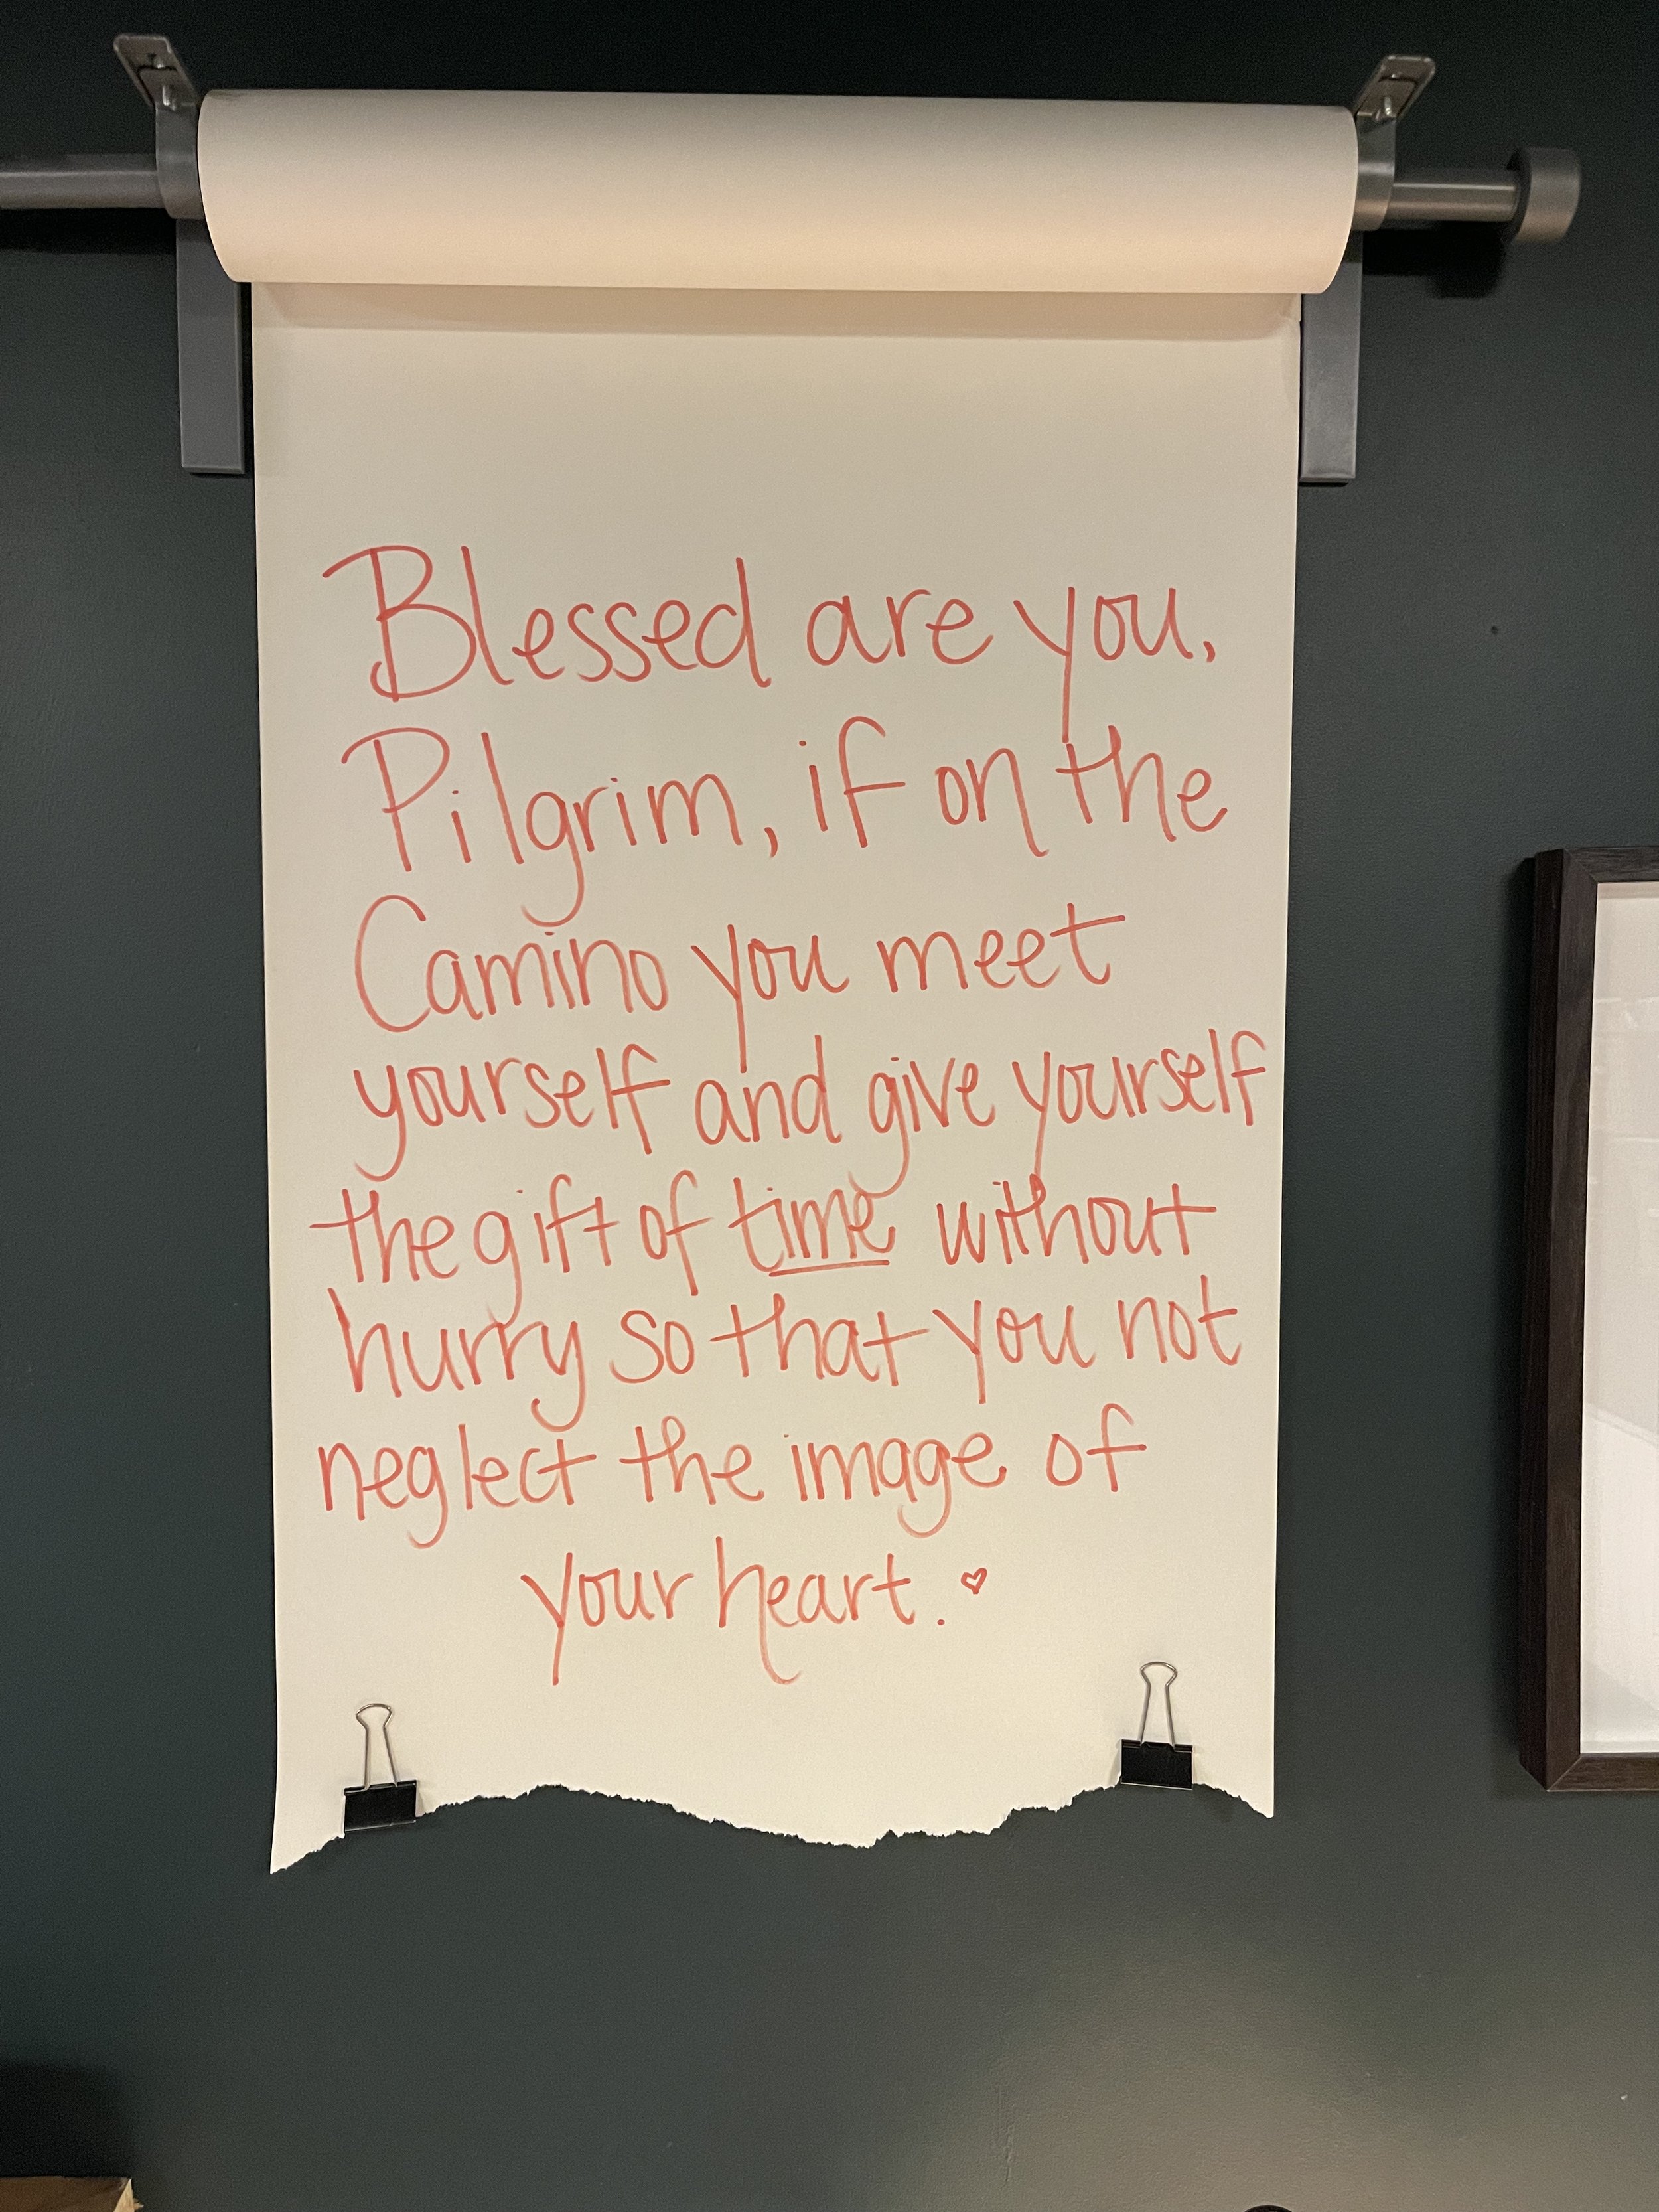 Blessed are you,
Pilgrim, if on the
Camino you meet
yourself and give yourself
the gift of time without
hurry so that you not
neglect the image of
your heart.